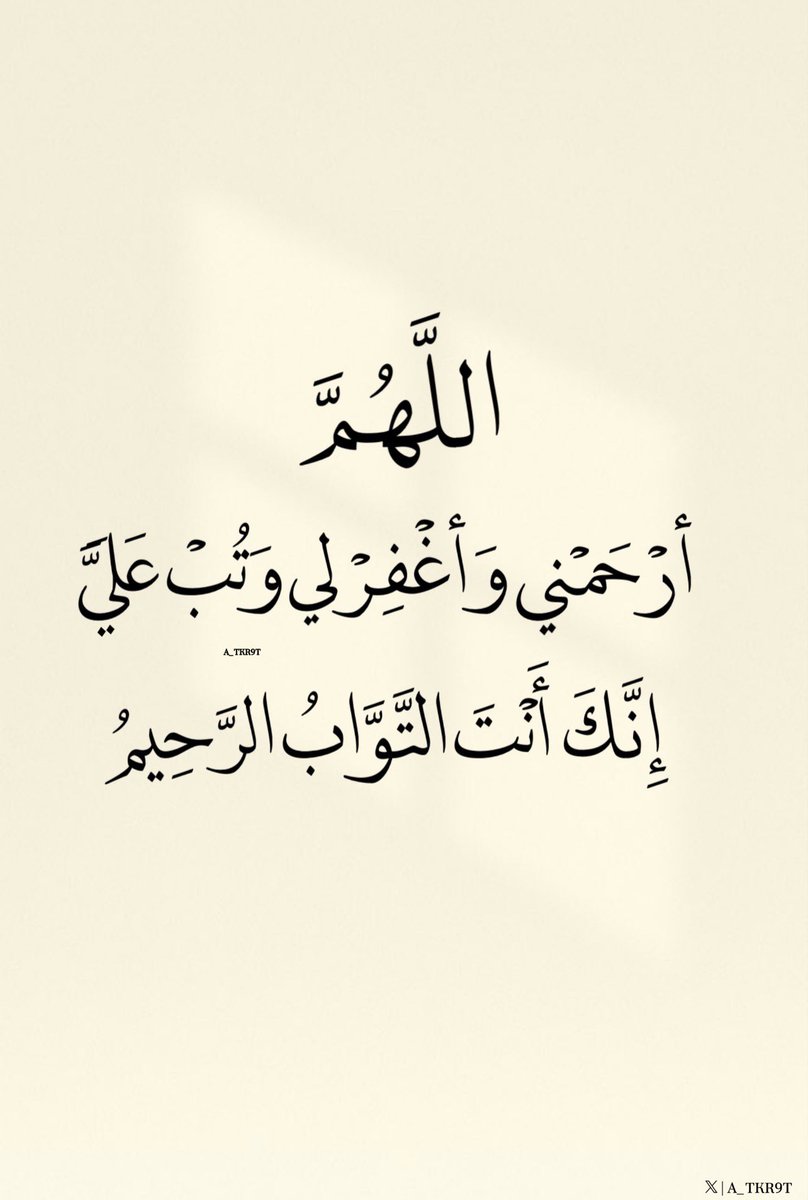 اللَّهُمَّ
أرْحَمْني وَأغْفِرْلي وَتُبْ عَليَّ
A_TKR9T
إِنَّكَ أَنْتَ التَّوَّابُ الرَّحِيمُ
𝕏 | A_TKR9T